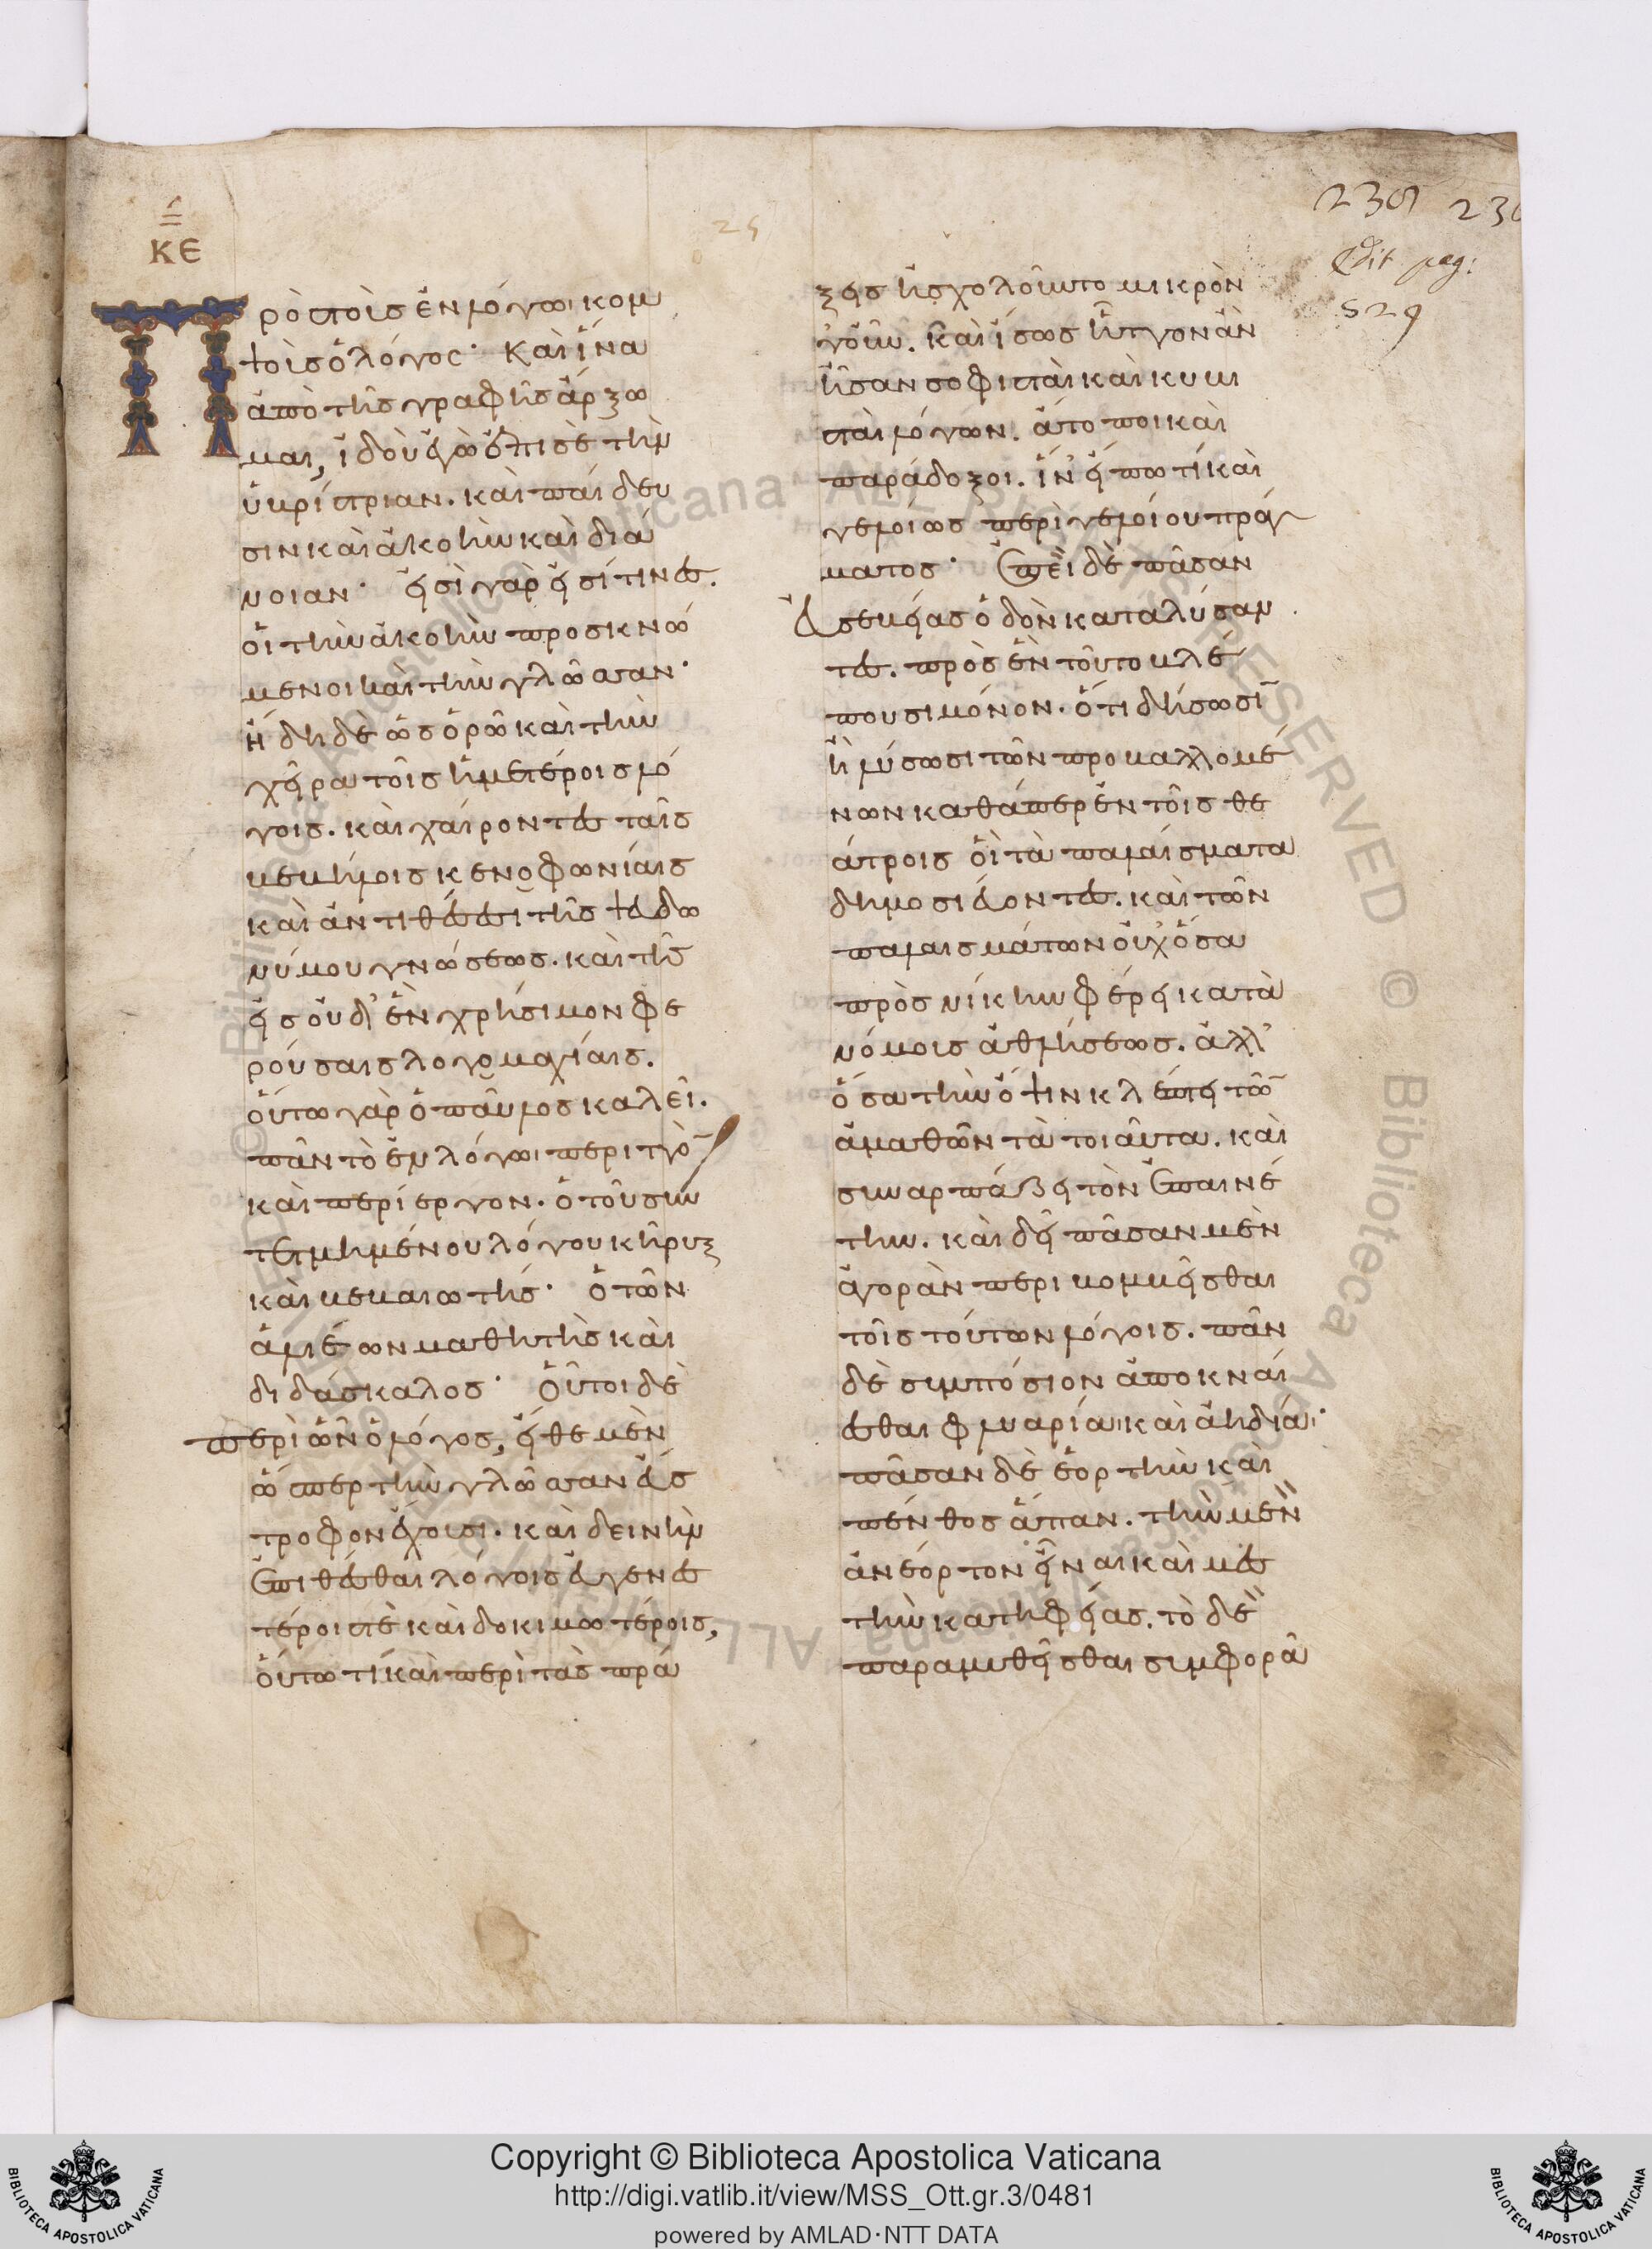 ΚΕ
25
239 230
Edit pag:
529
Πρὸς τοὺς ἐν λόγωι κομ
ψοὺς ὁ λόγος· Καὶ ἵνα
ἀπὸ τῆς γραφῆς ἄρξω
μαι, ἰδοὺ ἐγὼ ἐπὶ σὲ τὴν
ὑβρίστριαν. καὶ παίδευ
σιν καὶ ἀκοὴν καὶ διά
νοιαν· εἰσὶ γὰρ εἰσί τινες.
οἳ τὴν ἀκοὴν προσκνώ
μενοι καὶ τὴν γλῶσσαν·
ἤδη δὲ ὡς ὁρῶ καὶ τὴν
χεῖρα τοῖς ἡμετέροις λό
γοις. καὶ χαίροντες ταῖς
βεβήλοις κενοφωνίαις
καὶ ἀντιθέσεσι τῆς ψευδω
νύμου γνώσεως. καὶ ταῖς
εἰς οὐδ' ἓν χρήσιμον φε
ρούσαις λογομαχίαις.
οὕτω γὰρ ὁ παῦλος καλεῖ.
πᾶν τὸ ἐν λόγωι περιττὸν
καὶ περίεργον. ὁ τοῦ συν
τετμημένου λόγου κῆρυξ
καὶ βεβαιωτής· ὁ τῶν
ἁλιέων μαθητὴς καὶ
διδάσκαλος· Οὗτοι δὲ
περὶ ὧν ὁ λόγος, εἴθε μὲν
ὥσπερ τὴν γλῶσσαν εὔσ
τροφον ἔχουσι. καὶ δεινὴν
ἐπιθέσθαι λόγοις εὐγενεσ
τέροις τὲ καὶ δοκιμωτέροις,
οὕτω τι καὶ περὶ τὰς πρά
ξεις ἠσχολοῦντο μικρὸν
γοῦν. καὶ ἴσως ἧττον ἂν
ἦσαν σοφισταὶ καὶ κυβι
σταὶ λόγων. ἄτοποι καὶ
παράδοξοι. ἵν' εἴπω τι καὶ
γελοίως περὶ γελοίου πράγ
ματος· Ἐπεὶ δὲ πᾶσαν
εὐσεβείας ὁδὸν καταλύσαν
τες. πρὸς ἓν τοῦτο βλέ
πουσι μόνον. ὅτι δήσωσιν
ἢ λύσωσι τῶν προβαλλομέ
νων καθάπερ ἐν τοῖς θε
άτροις οἱ τὰ παλαίσματα
δημοσιεύοντες. καὶ τῶν
παλαισμάτων οὐχ ὅσα
πρὸς νίκην φέρει κατὰ
νόμοις ἀθλήσεως. ἀλλ'
ὅσα τὴν ὄψιν κλέπτει τῶν
ἀμαθῶν τὰ τοιαῦτα. καὶ
συναρπάζει τὸν ἐπαινέ
την. καὶ δεῖ πᾶσαν μὲν
ἀγορὰν περιβομβεῖσθαι
τοῖς τούτων λόγοις. πᾶν
δὲ συμπόσιον ἀποκναί
εσθαι φλυαρίαι καὶ ἀηδίαι·
πᾶσαν δὲ ἑορτὴν καὶ
πένθος ἅπαν. τὴν μὲν
ἀνέορτον εἶναι καὶ μεσ
τὴν κατηφείας. τὸ δὲ
παραμυθεῖσθαι συμφορᾶ
Copyright © Biblioteca Apostolica Vaticana
http://digi.vatlib.it/view/MSS_Ott.gr.3/0481
powered by AMLAD·NTT DATA
BIBLIOTECA APOSTOLICA VATICANA
BIBLIOTECA APOSTOLICA VATICANA